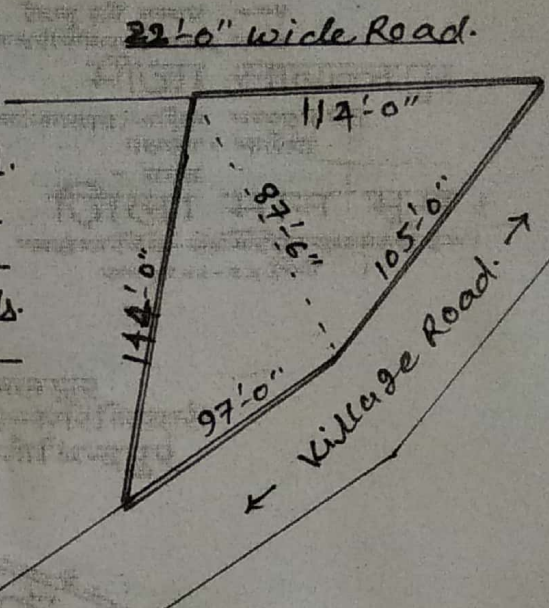 22'-0" wide Road.
114'-0"
87'-6"
105'-0"
144'-0"
97'-0"
Village Road.